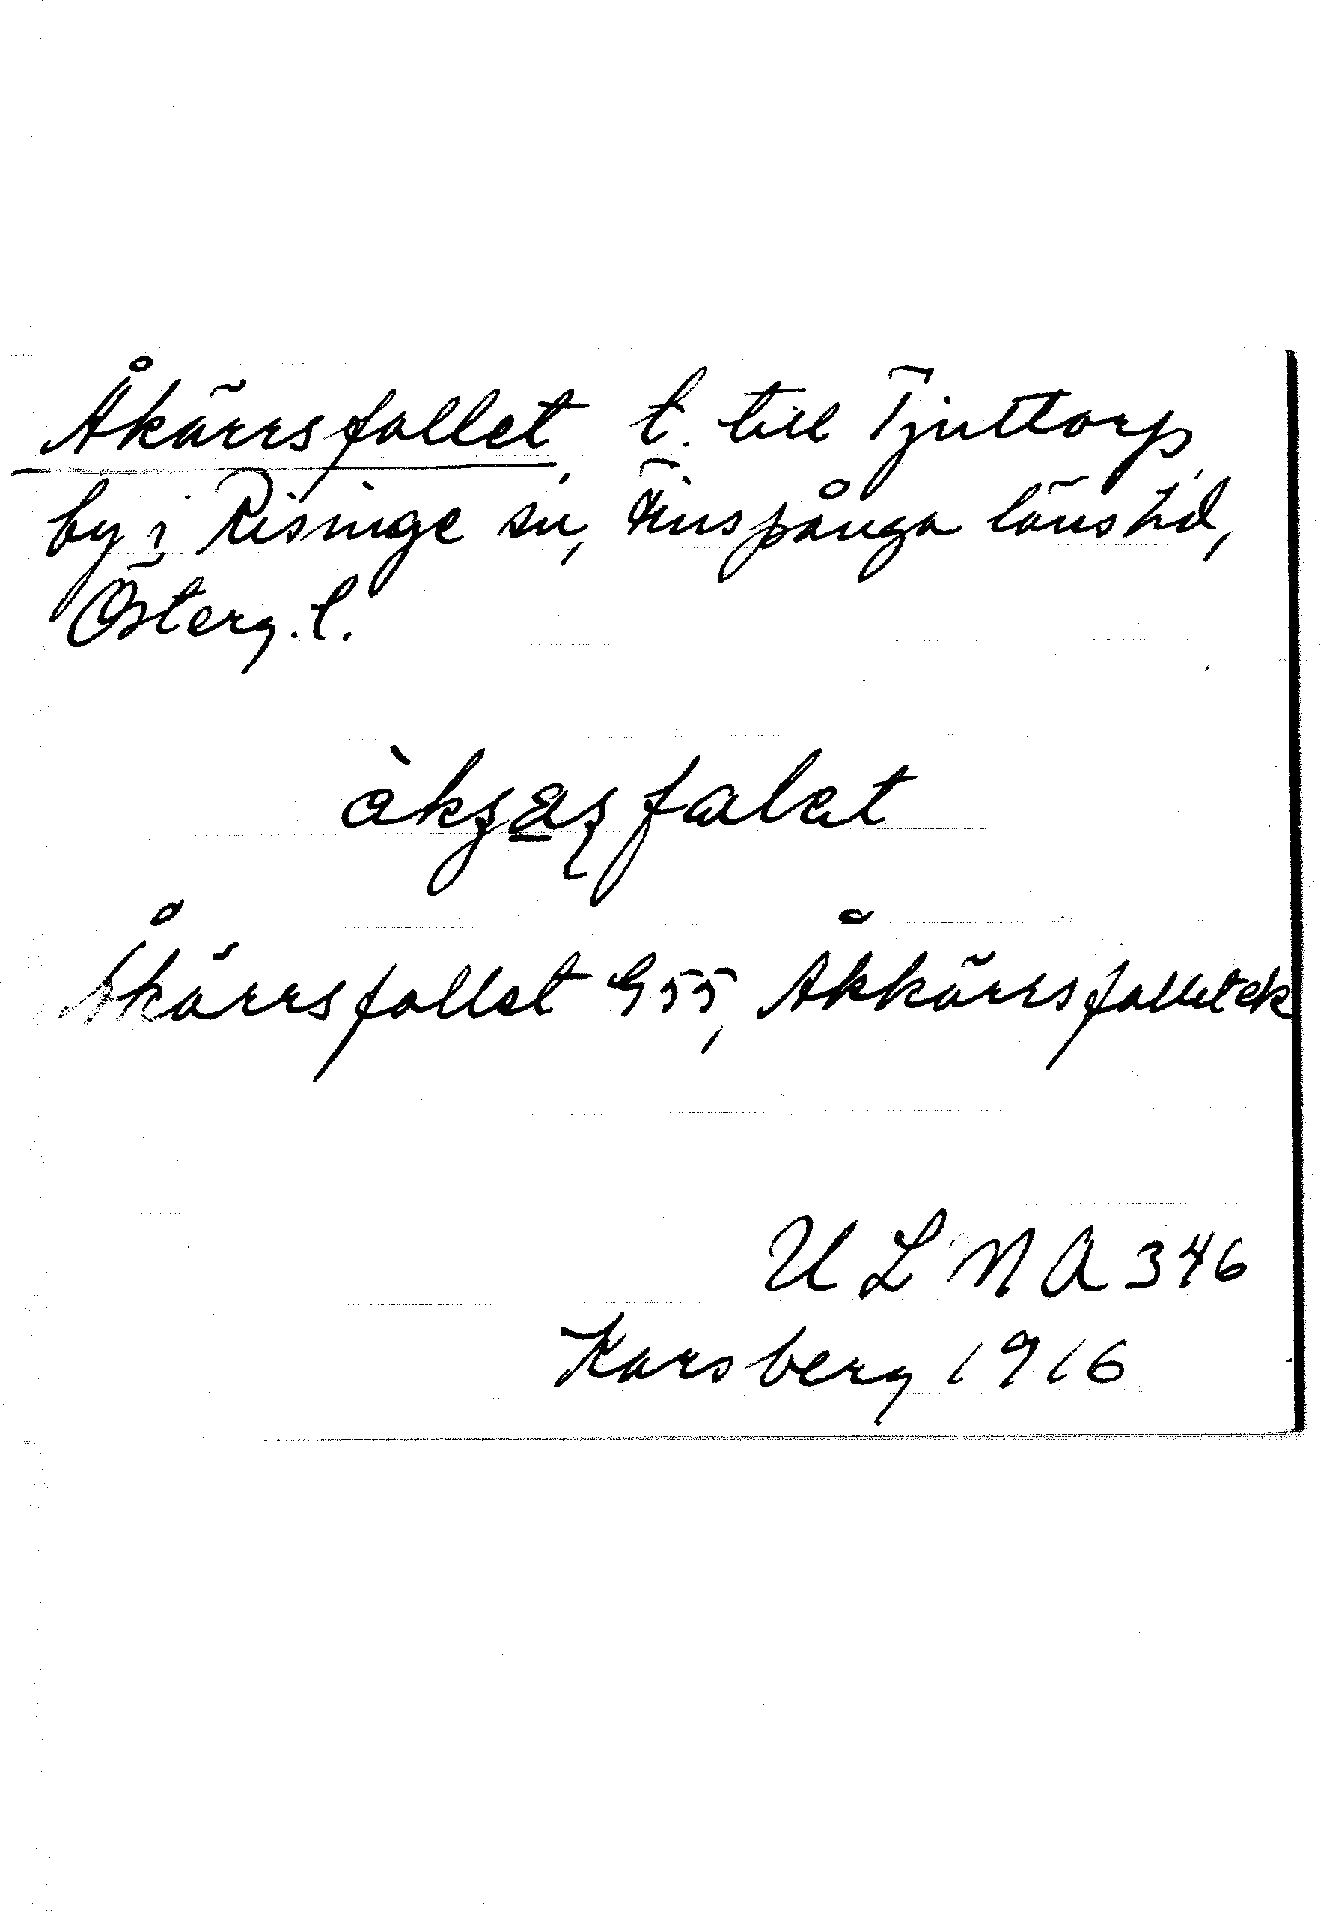 Åkärrsfallet, t. till Tjuttorp,
by i Risinge sn, Finspånga länshd,
Österg. l.
Åkärrsfallet G55, Åkkärrsfallet ek
ULMA 346
Karsberg 1916